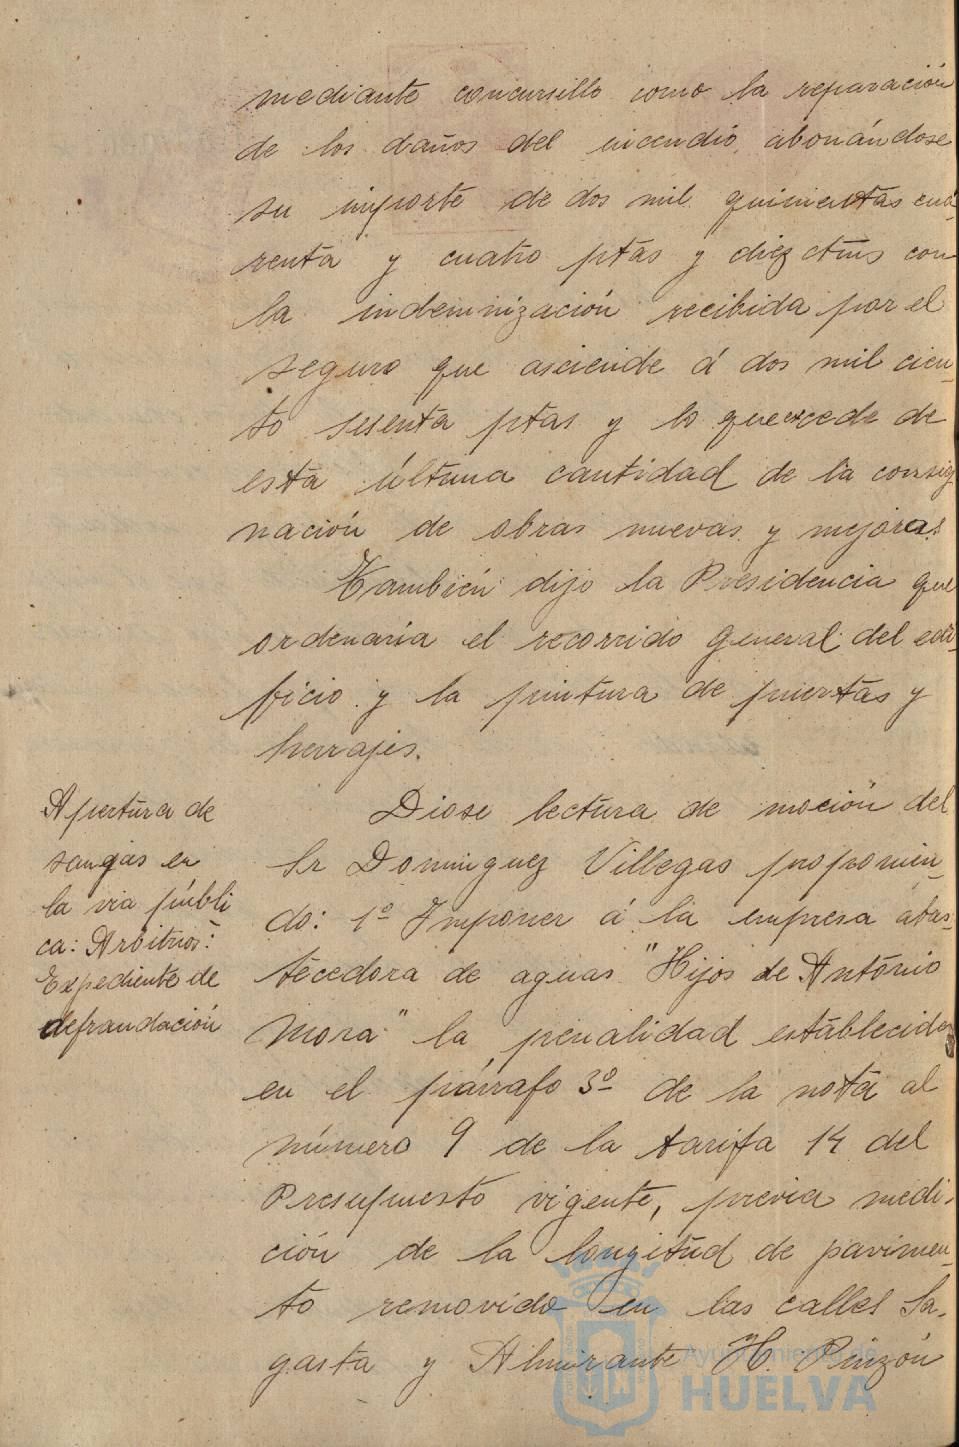 mediante concursillo como la reparación
de los daños del incendio, abonándose
su importe de dos mil quinientas cua-
renta y cuatro ptas y diez ctms con
la indemnización recibida por el
seguro que asciende á dos mil cien-
to sesenta ptas y lo que excede de
esta última cantidad de la consig
nación de obras nuevas y mejoras.
También dijo la Presidencia que
ordenaria el recorrido general del edi-
ficio y la pintura de puertas y
herrajes.
Apertura de
zangas en
la via públi
ca: Arbitrios:
Expediente de
defraudación
Diose lectura de moción del
Sr Dominguez Villegas proponien-
do: 1º Imponer á la empresa abas-
tecedora de aguas "Hijos de António
Mora" la penalidad establecida
en el párrafo 3º de la nota al
número 9 de la tarifa 14 del
Presupuesto vigente, previa medi-
ción de la longitud de pavimen-
to removido en las calles Sa-
gasta y Almirante H. Pinzón
Ayuntamiento de
HUELVA